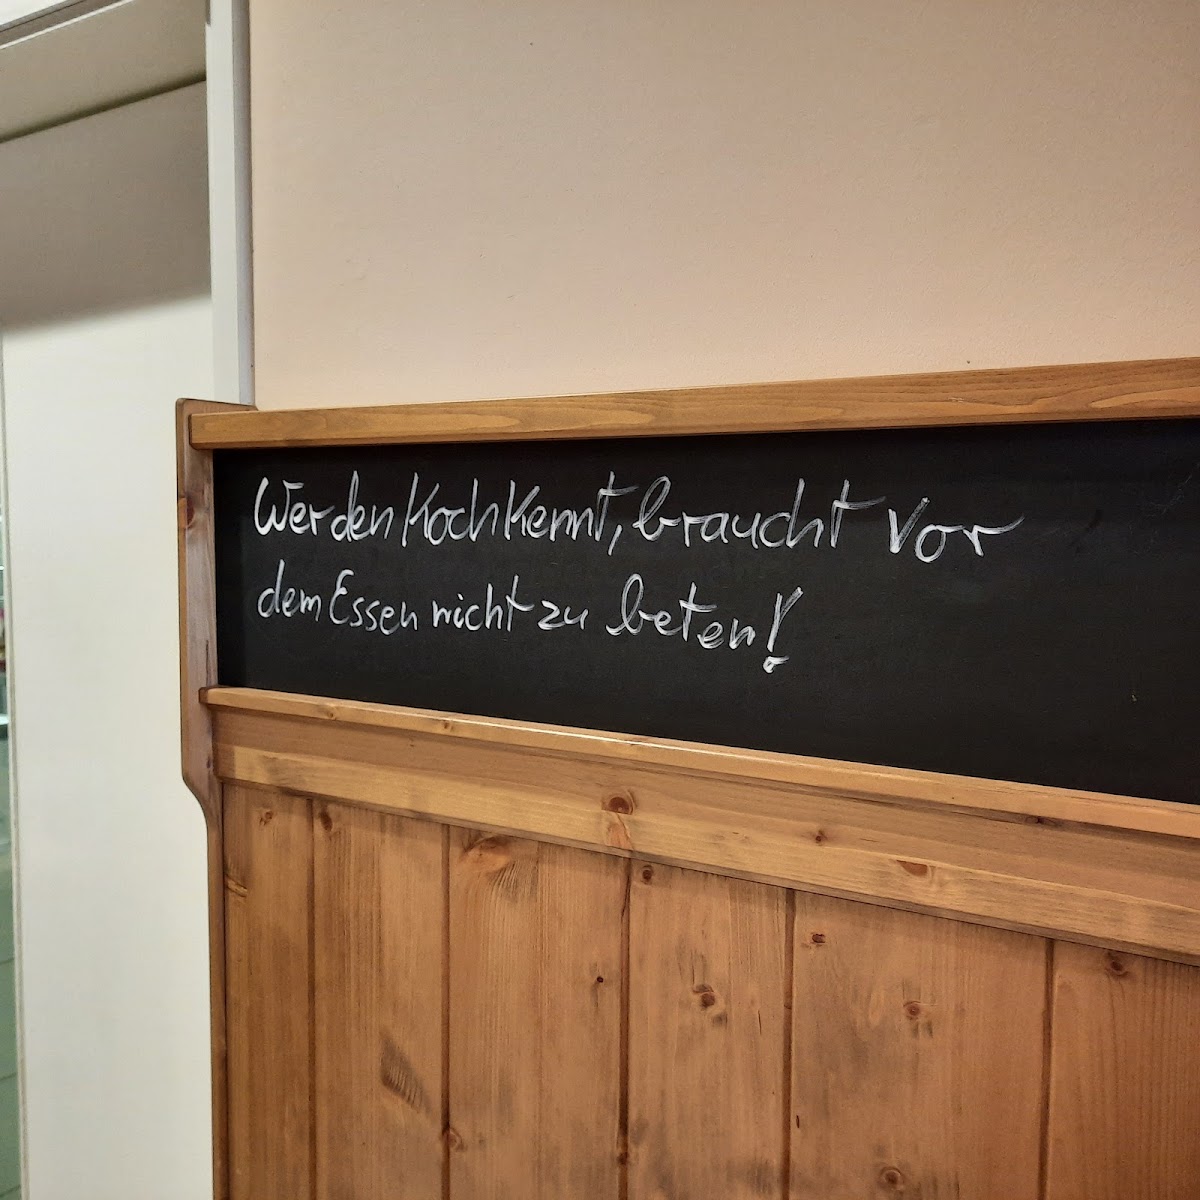 Wer den Koch kennt, braucht vor
dem Essen nicht zu beten!